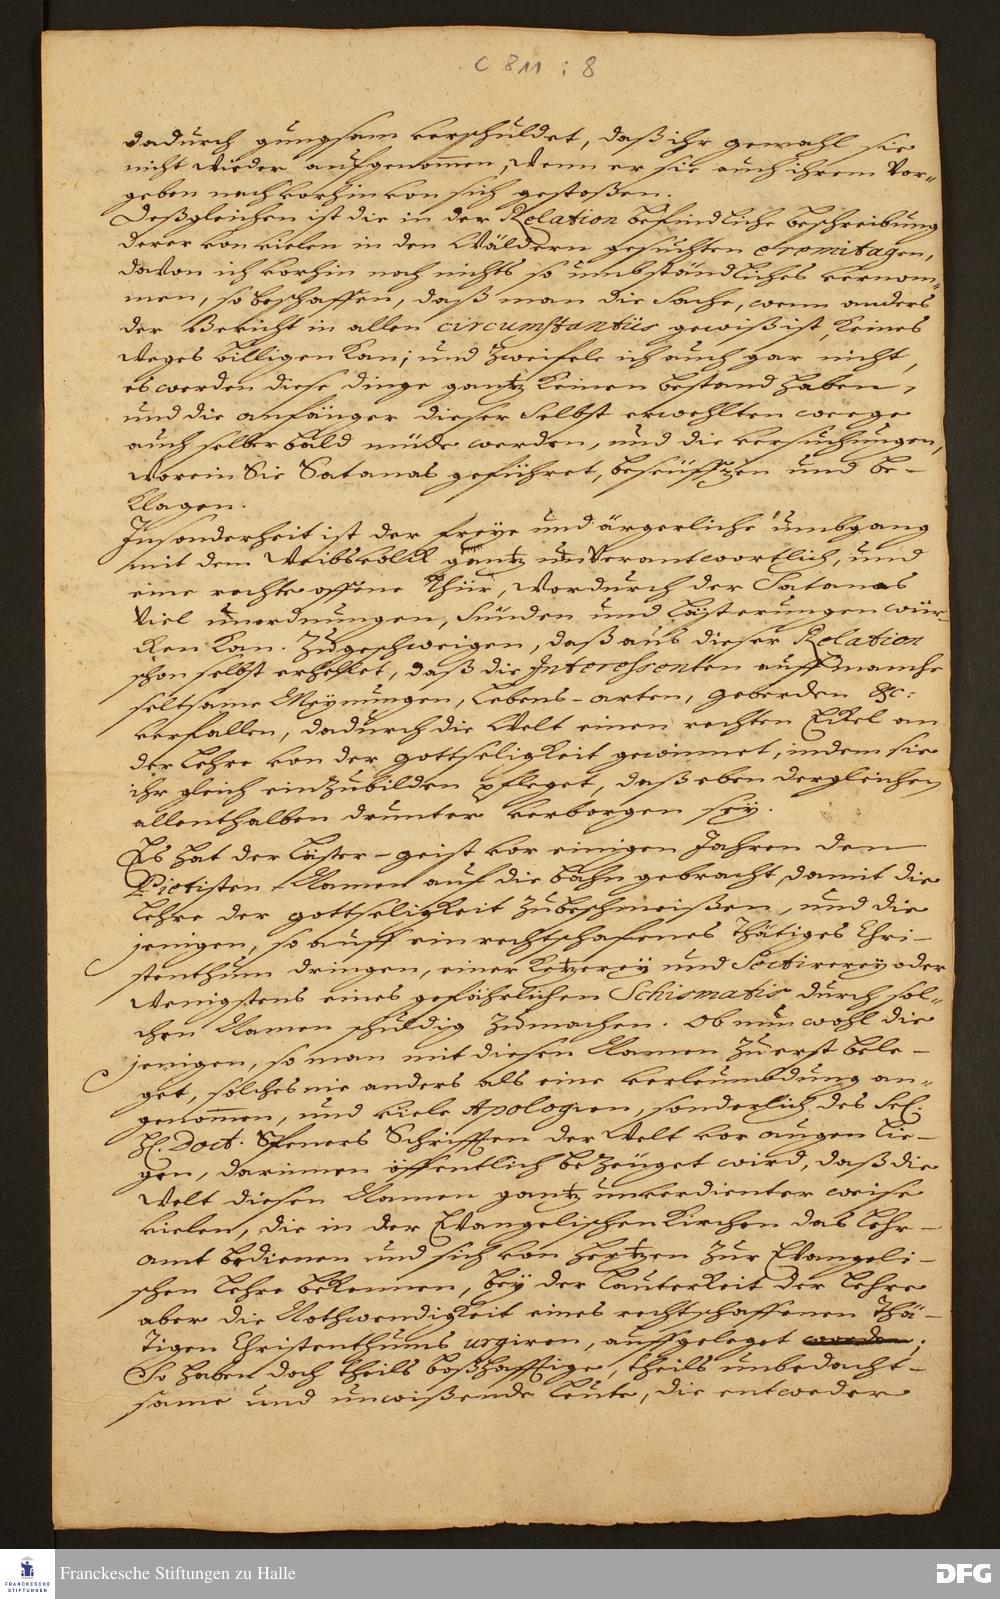 C 811 : 8
dadurch gungsam verschuldet, daß ihr gemahl sie
nicht wieder aufgenommen, wenn er sie auch ihrem Vor-
geben nach vorhin von sich gestoßen.
Deßgleichen ist die in der Relation befindliche beschreibung
derer von vielen in den Wäldern gesuchten eremitagen,
davon ich vorhin noch nichts so umbständliches vernom-
men, so beschaffen, daß man die Sache, wenn anders
der Bericht in allen circumstantiis gewiß ist, keines
weges billigen kan; und zweifele ich auch gar nicht,
es werden diese dinge gantz keinen bestand haben,
und die anfänger dieser selbst erwehlten weege
auch selber bald müde werden, und die versuchungen,
worein Sie Satanas geführet, beseüfftzen und be-
klagen.
Insonderheit ist der freye und ärgerliche umbgang
mit dem Weibsvolck gantz unverantwortlich, und
eine rechte offene Thür, wordurch der Satanas
viel unordnungen, Sünden und Lästerungen wür-
ken kan. Zugeschweigen, daß aus dieser Relation
schon selbst erhellet, daß die Interessenten auff manche
seltsame Meynungen, Lebens-arten, geberden &c:
verfallen, dadurch die Welt einen rechten Eckel an
der Lehre von der gottseligkeit gewinnet, indem sie
ihr gleich einzubilden pfleget, daß eben dergleichen
allenthalben drunter verborgen sey.
Es hat der Läster-geist vor einigen Jahren den
Pietisten Namen auf die bahn gebracht, damit die
Lehre der gottseligkeit zubeschmeißen, und die
jenigen, so auff ein rechtschafenes thätiges Chri-
stenthum dringen, einer Ketzerey und Sectirerey oder
wenigstens eines gefährlichen Schismatis durch sol-
chen Namen schuldig zumachen. Ob nun wohl die
jenigen, so man mit diesen Namen zu erst bele-
get, solches nie anders als eine verleumbdung an-
genommen, und viele Apologien, sonderlich des Sel.
H. Doct. Speners Schrifften der Welt vor augen lie-
gen, darinnen öffentlich bezeüget wird, daß die
Welt diesen Namen gantz unverdienter weise
vielen, die in der Evangelischen Kirchen das Lehr-
amt bedienen und sich von Hertzen zur Evangeli-
schen Lehre bekennen, bey der Lauterkeit der Lehre
aber die Nothwendigkeit eines rechtschaffenen thä-
tigen Christenthums urgiren, auffgeleget worden;
So haben doch theils boßhafftige, theils unbedacht-
same und unwißende Leute, die entweder
Franckesche Stiftungen zu Halle
FRANCKESCHE
STIFTUNGEN
DFG